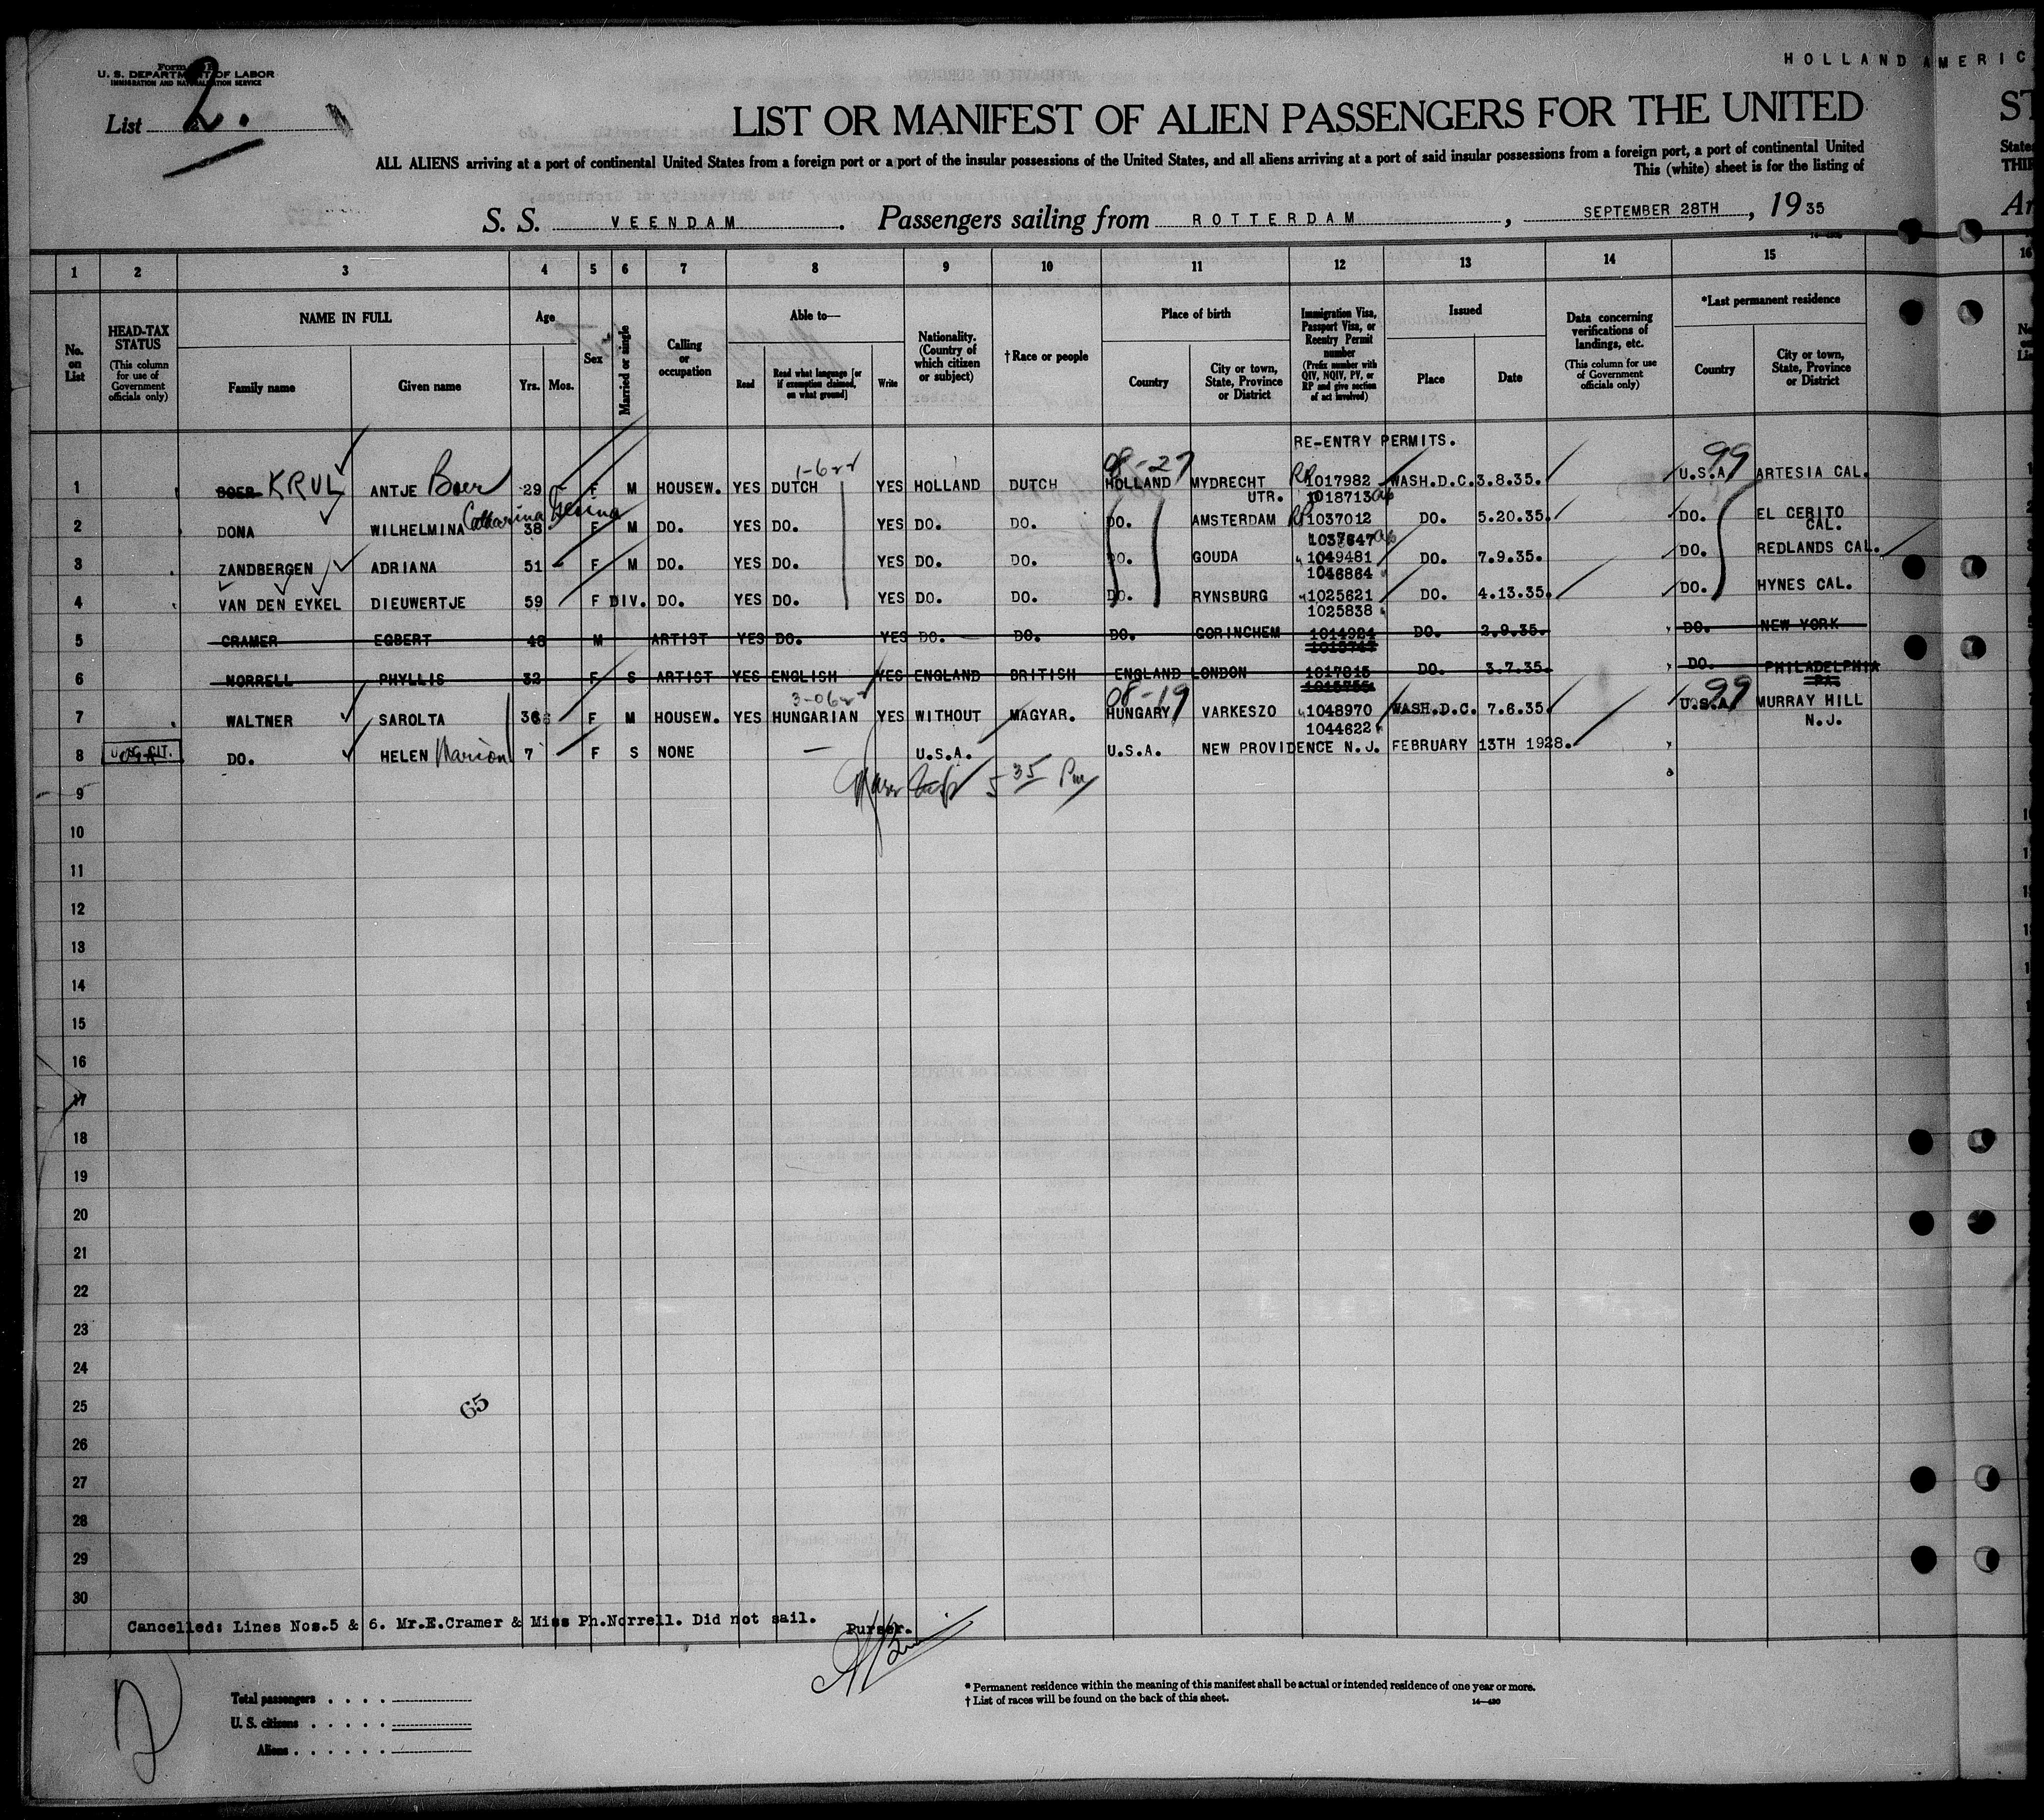 HOLLAND AMERIC
Form
U. S. DEPARTMENT OF LABOR
IMMIGRATION AND NATURALIZATION SERVICE
List 2.
LIST OR MANIFEST OF ALIEN PASSENGERS FOR THE UNITED ST
ALL ALIENS arriving at a port of continental United States from a foreign port or a port of the insular possessions of the United States, and all aliens arriving at a port of said insular possessions from a foreign port, a port of continental United State
This (white) sheet is for the listing of THI
S. S. VEENDAM. Passengers sailing from ROTTERDAM, SEPTEMBER 28TH, 1935 Ar
1 2 3 4 5 6 7 8 9 10 11 12 13 14 15 16
No. on List
HEAD-TAX STATUS (This column for use of Government officials only)
NAME IN FULL
Family name Given name
Age
Yrs. Mos.
Sex
Married or single
Calling or occupation
Able to—
Read Read what language [or if exemption claimed, on what ground] Write
Nationality. (Country of which citizen or subject)
† Race or people
Place of birth
Country City or town, State, Province or District
Immigration Visa, Passport Visa, or Reentry Permit number (Prefix number with QIV, NQIV, PV, or RP and give section of act involved)
Issued
Place Date
Data concerning verifications of landings, etc. (This column for use of Government officials only)
*Last permanent residence
Country City or town, State, Province or District
RE-ENTRY PERMITS.
1-622 08-27 99
1 BOER KRUL ANTJE Boer 29 F M HOUSEW. YES DUTCH YES HOLLAND DUTCH HOLLAND MYDRECHT RP 1017982 WASH.D.C. 3.8.35. U.S.A. ARTESIA CAL.
UTR. 1018713
2 DONA WILHELMINA Catharina Gesina 38 F M DO. YES DO. YES DO. DO. DO. AMSTERDAM RP 1037012 DO. 5.20.35. DO. EL CERITO CAL.
1037647
3 ZANDBERGEN ADRIANA 51 F M DO. YES DO. YES DO. DO. DO. GOUDA 1049481 DO. 7.9.35. DO. REDLANDS CAL.
1046864
4 VAN DEN EYKEL DIEUWERTJE 59 F DIV. DO. YES DO. YES DO. DO. DO. RYNSBURG 1025621 DO. 4.13.35. DO. HYNES CAL.
1025838
5 CRAMER EGBERT 48 M ARTIST YES DO. YES DO. DO. DO. GORINCHEM 1014984 DO. 2.9.35. DO. NEW YORK
6 NORRELL PHYLLIS 32 F S ARTIST YES ENGLISH YES ENGLAND BRITISH ENGLAND LONDON 1017815 DO. 3.7.35. DO. PHILADELPHIA PA.
3-0622 08-19 99
7 WALTNER SAROLTA 36 F M HOUSEW. YES HUNGARIAN YES WITHOUT MAGYAR. HUNGARY VARKESZO 1048970 WASH.D.C. 7.6.35. U.S.A. MURRAY HILL N.J.
1044622
8 U.S. CIT. DO. HELEN Marion 7 F S NONE — U.S.A. U.S.A. NEW PROVIDENCE N.J. FEBRUARY 13TH 1928.
5 35 Pm
9
10
11
12
13
14
15
16
17
18
19
20
21
22
23
24
25
26
27
28
29
30
65
Cancelled: Lines Nos.5 & 6. Mr.E.Cramer & Miss Ph.Norrell. Did not sail. Purser.
2
Total passengers . . . .
U. S. citizens . . . . .
Aliens . . . . . .
* Permanent residence within the meaning of this manifest shall be actual or intended residence of one year or more.
† List of races will be found on the back of this sheet.
14—430